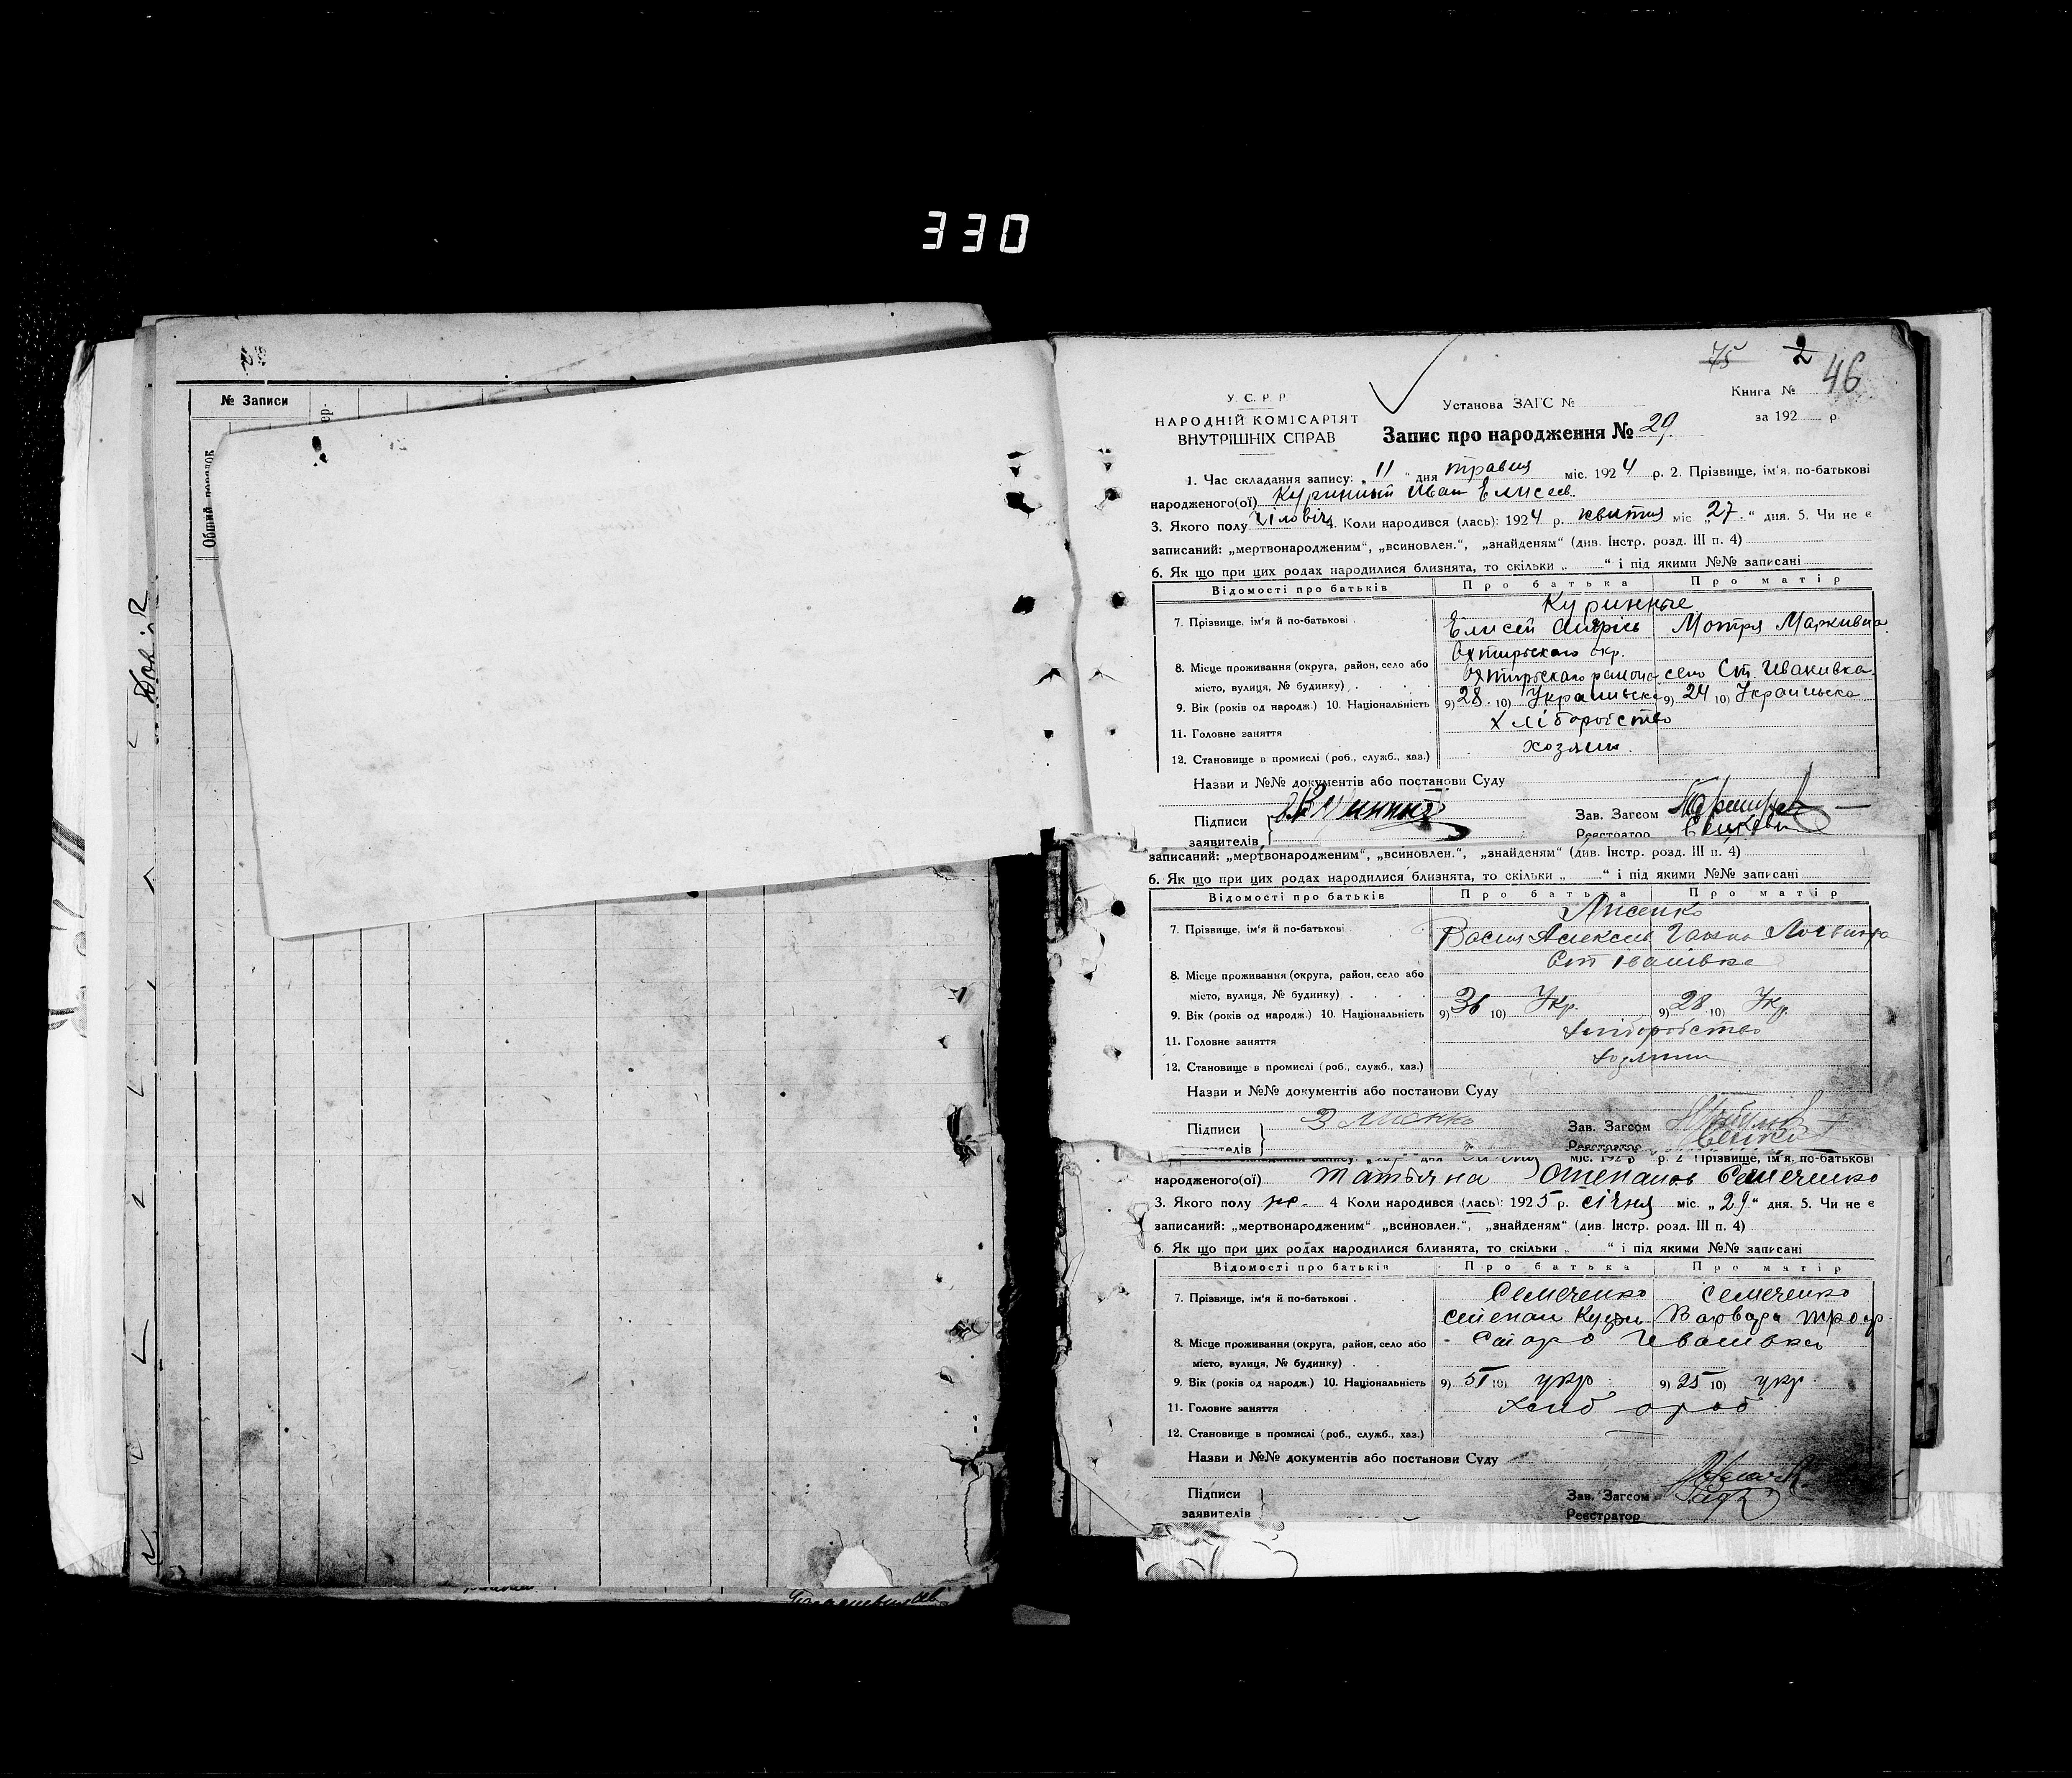 330
№ Записи
75 2 46
У. С. Р. Р.
НАРОДНІЙ КОМІСАРІЯТ
ВНУТРІШНІХ СПРАВ
Установа ЗАГС №
Книга №
за 192 р.
Запис про народження № 29
1. Час складання запису: „ 11 " дня травня міс. 1924 р. 2. Прізвище, ім'я, по-батькові
народженого(ої) Куринный Иван Елисеев.
3. Якого полу чіловіч 4. Коли народився (лась): 1924 р. квитня міс „ 27. " дня. 5. Чи не є
записаний: „мертвонародженим", „всиновлен.", „знайденям" (див. Інстр. розд. III п. 4)
6. Як що при цих родах народилися близнята, то скільки „ " і під якими №№ записані
Відомості про батьків Про батька Про матір
Куринные
7. Прізвище, ім'я й по-батькові Елисей Мотря Маркивна
Охтирьского окр.
8. Місце проживання (округа, район, село або
місто, вулиця, № будинку) Охтирьскаго района село Ст. Ивакивка
9. Вік (років од народж.) 10. Національність 9) 28. 10) Украиньска 9) 24 10) Украиньска
11. Головне заняття Хліборобство
12. Становище в промислі (роб., служб., хаз.) хозяин.
Назви и №№ документів або постанови Суду
Підписи
заявителів
Зав. Загсом
Реєстратор
записаний: „мертвонародженим", „всиновлен.", „знайденям" (див. Інстр. розд. III п. 4)
6. Як що при цих родах народилися близнята, то скільки „ " і під якими №№ записані
Відомості про батьків Про батька Про матір
Лисенко
7. Прізвище, ім'я й по-батькові
Ст Івашівка
8. Місце проживання (округа, район, село або
місто, вулиця, № будинку)
9. Вік (років од народж.) 10. Національність 9) 36 10) Укр. 9) 28 10) Укр.
11. Головне заняття хліборобство
12. Становище в промислі (роб., служб., хаз.) хозяин
Назви и №№ документів або постанови Суду
Підписи
Зав. Загсом
Реєстратор
міс. 192 р. 2 Прізвище, ім'я, по-батькові
народженого(ої) Татьяна Степанов Семеченко
3. Якого полу ж. 4 Коли народився (лась): 1925 р. січня міс. „ 29 " дня. 5. Чи не є
записаний: „мертвонародженим" „всиновлен.", „знайденям" (див. Інстр. розд. III п. 4)
6. Як що при цих родах народилися близнята, то скільки „ " і під якими №№ записані
Відомості про батьків Про батька Про матір
7. Прізвище, ім'я й по-батькові Семеченко Семеченко
Степан Кузм Варвара Троф.
8. Місце проживання (округа, район, село або Старо Ивашвка
місто, вулиця, № будинку)
9. Вік (років од народж.) 10. Національність 9) 51 10) укр 9) 25 10) укр.
11. Головне заняття Хліб ороб
12. Становище в промислі (роб., служб., хаз.)
Назви и №№ документів або постанови Суду
Підписи
заявителів
Зав. Загсом
Реєстратор